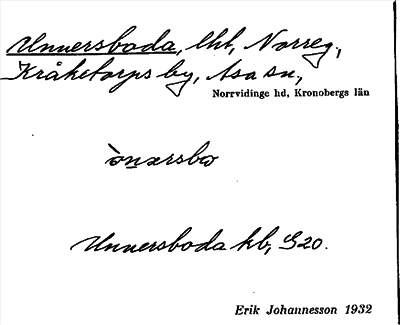 Unnersboda, lht, Norreg.,
Kråketorps by, Asa sn,
Norrvidinge hd, Kronobergs län
Unnersboda hb, G20.
Erik Johannesson 1932